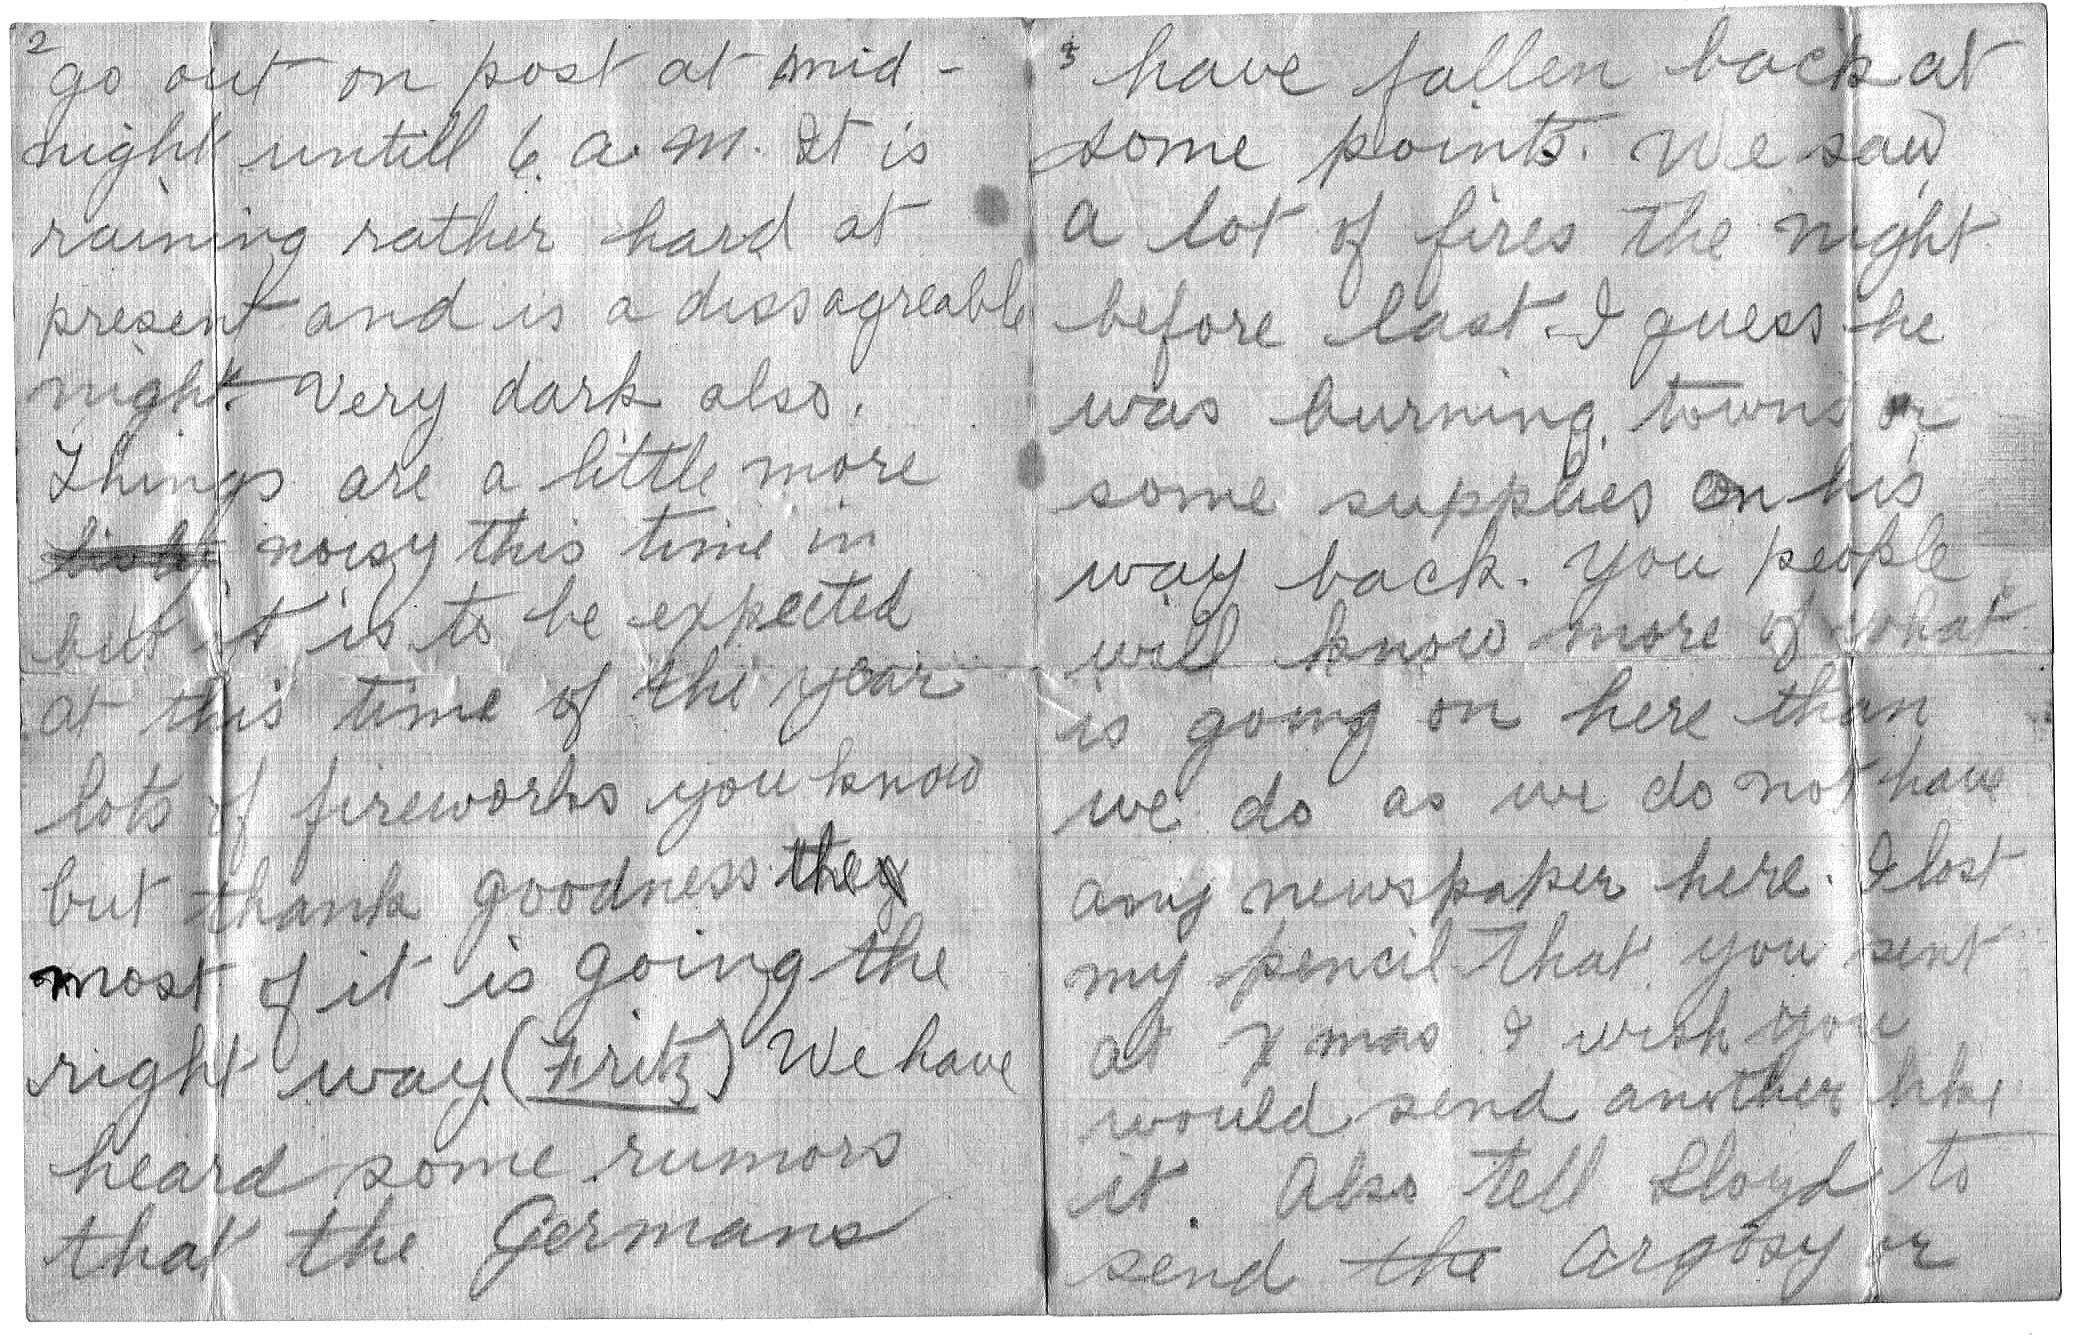 2
go out on post at mid-
night untill 6 a.m. It is
raining rather hard at
present and is a dissagreable
night. Very dark also.
Things are a little more
noisy this time in
but it is to be expected
at this time of the year
lots of fireworks you know
but thank goodness they
most of it is going the
right way (Fritz) We have
heard some rumors
that the Germans
3
have fallen back at
some points. We saw
a lot of fires the night
before last. I guess he
was burning towns or
some supplies on his
way back. You people
will know more of what
is going on here than
we do as we do not have
any newspaper here. I lost
my pencil that you sent
at Xmas I wish you
would send another like
it. Also tell Lloyd to
send the Argosy or